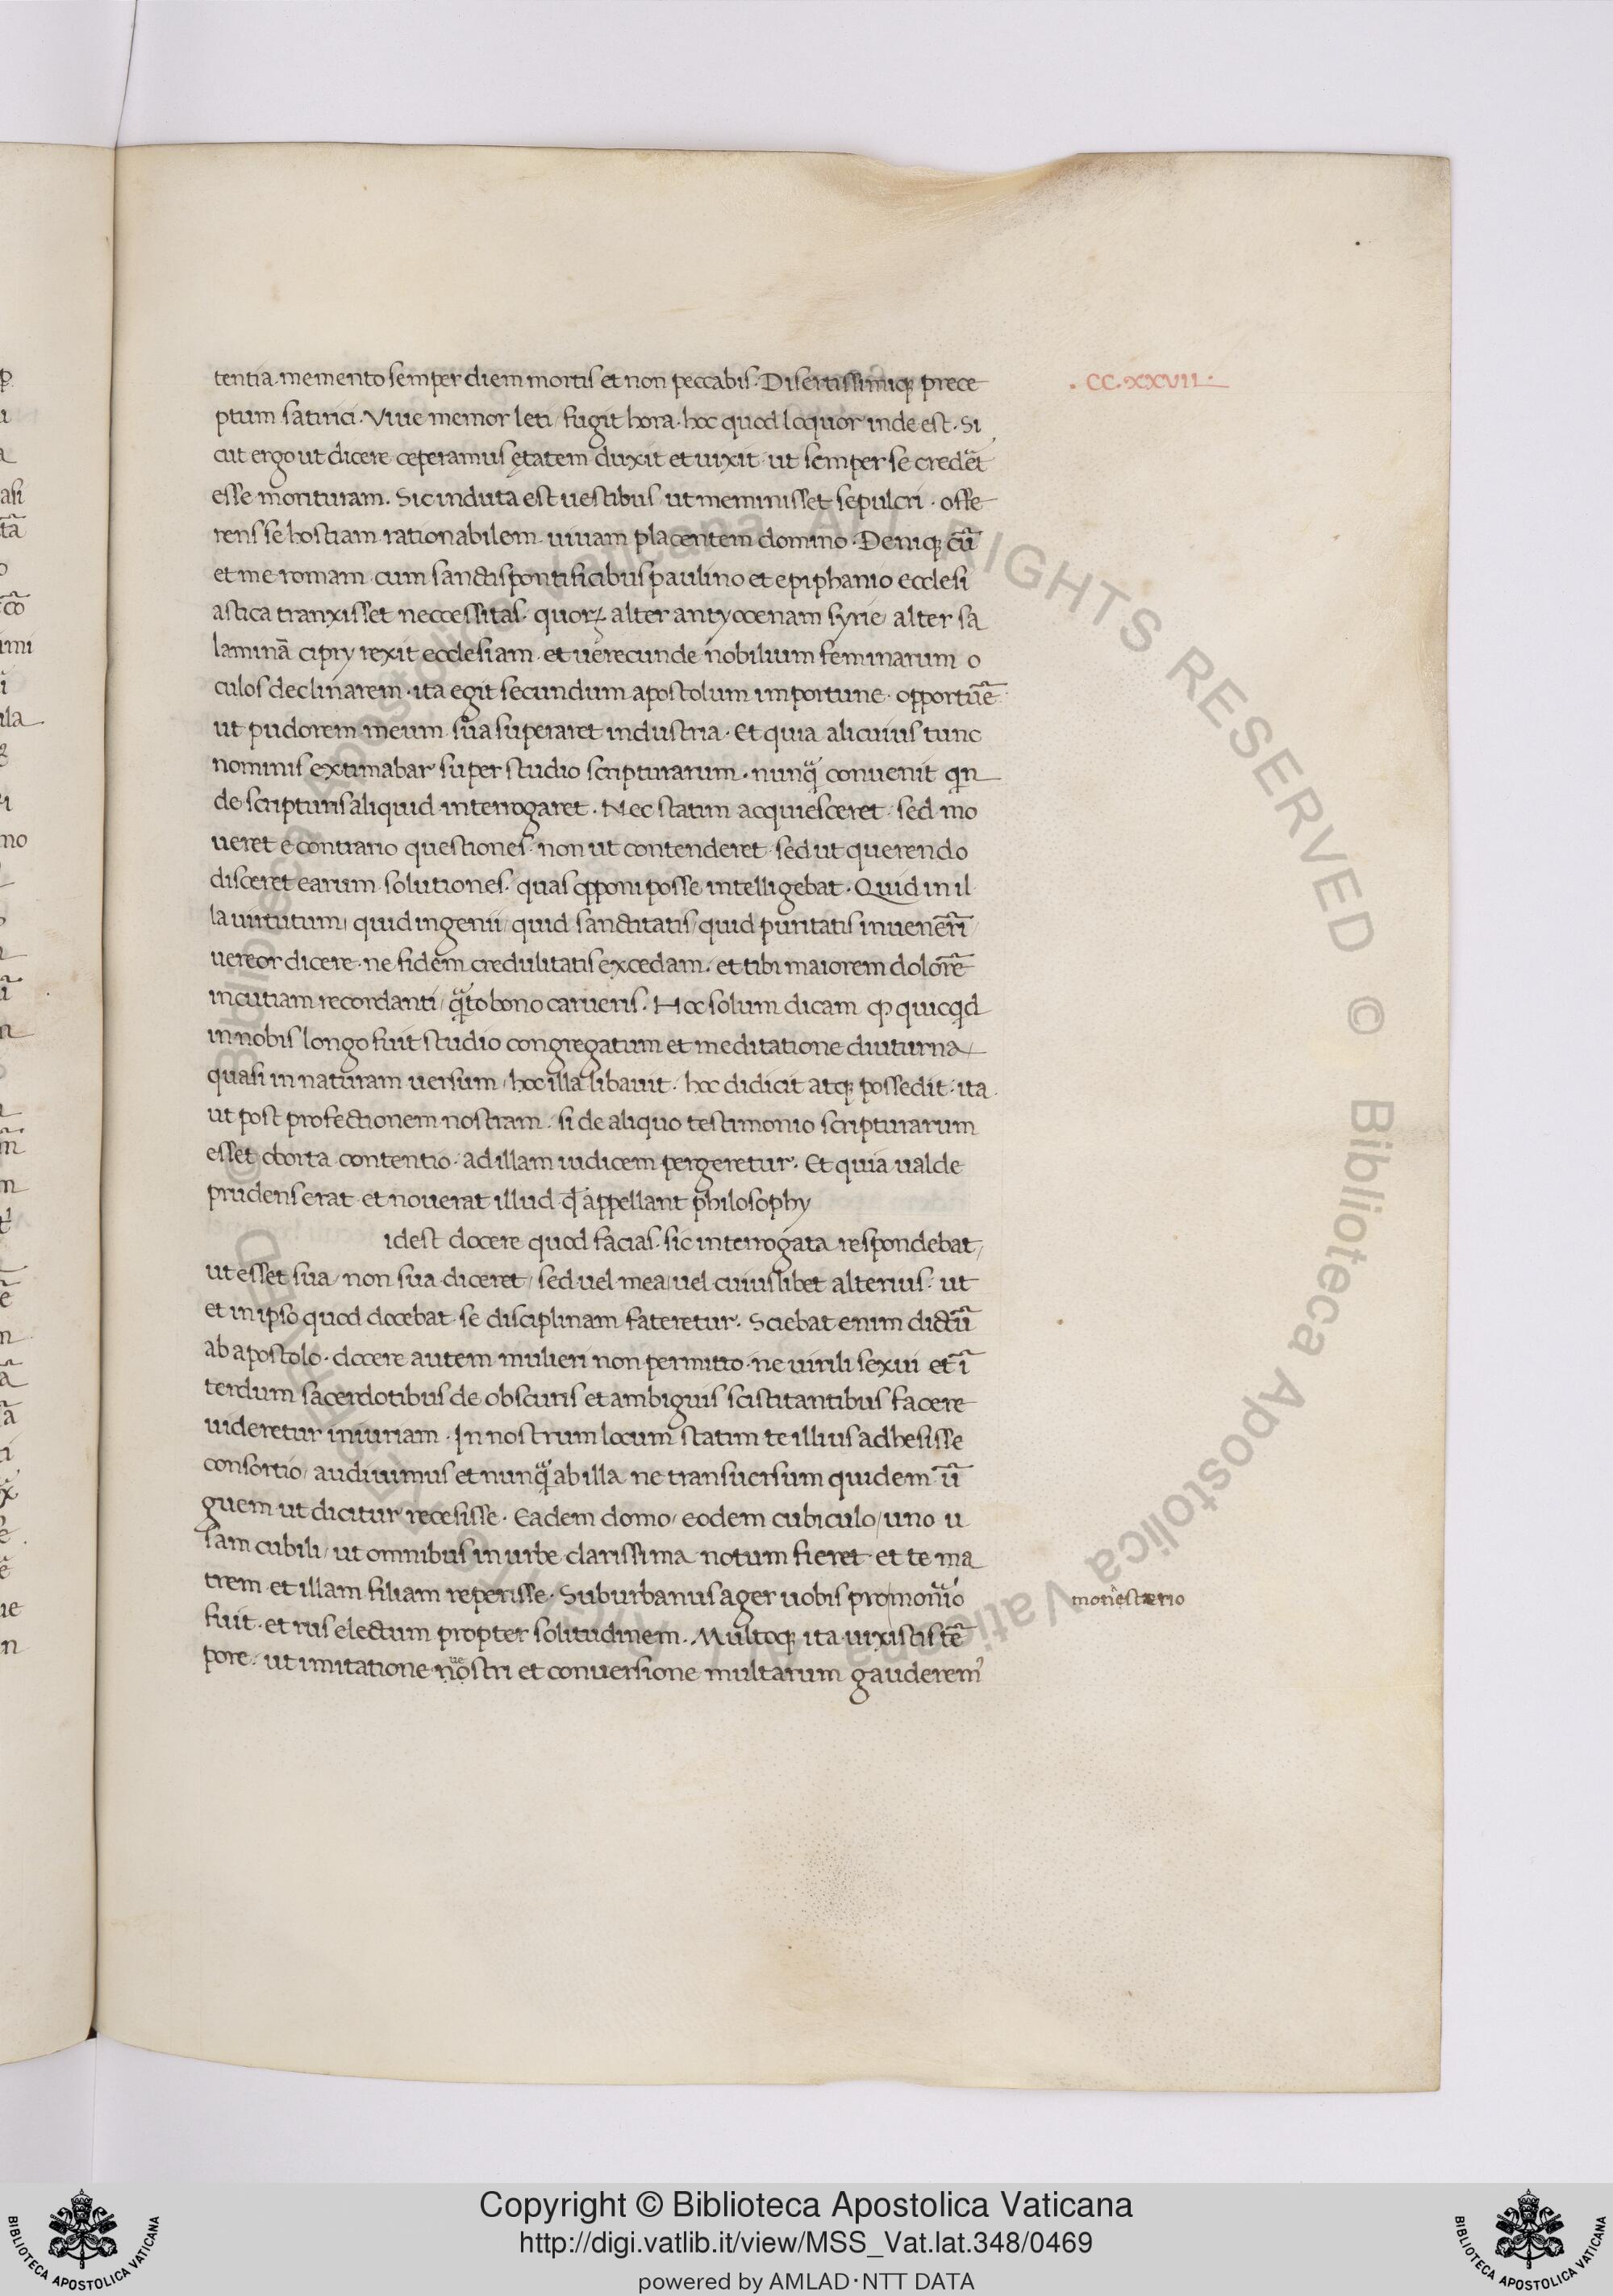 tentia. memento semper diem mortis et non peccabis. Disertissimiq; prece
. CC. XXVII.
ptum satirici. Viue memor leti / fugit hora. hoc quod loquor inde est. Si
cut ergo ut dicere ceperamus ętatem duxit et uixit. ut semper se crederet̃
esse morituram. Sic induta est uestibus ut meminisset sepulcri. offe
rens se hostiam. rationabilem. uiuam placentem domino. Deniq; cũ
et me romam cum sanctis pontificibus paulino et epiphanio ecclesi
astica tranxisset neccessitas. quorꝝ alter antyocenam syrie / alter sa
laminã cipry rexit ecclesiam. et uerecunde nobilium feminarum o
culos declinarem. ita egit secundum apostolum importune. opportũe
ut pudorem meum sua superaret industria. Et quia alicuius tunc
nominis extimabar super studio scripturarum. nunq̃ conuenit qn
de scripturis aliquid interrogaret. Nec statim acquiesceret. sed mo
ueret e contrario questiones. non ut contenderet sed ut querendo
disceret earum solutiones. quas opponi posse intelligebat. Quid in il
la uirtutum / quid ingenii / quid sanctitatis / quid puritatis inuenẽri /
uereor dicere. ne fidem credulitatis excedam. et tibi maiorem dolorẽ
incutiam recordanti / q̃to bono carueris. Hoc solum dicam ꝙ quicqd
in nobis longo fuit studio congregatum et meditatione diuturna /
quasi in naturam uersum / hoc illa libauit. hoc didicit atq; possedit. ita.
ut post profectionem nostram. si de aliquo testimonio scripturarum
esset oborta contentio. ad illam iudicem pergeretur. Et quia ualde
prudens erat et nouerat illud q̃ appellant philosophy
idest docere quod facias. sic interrogata respondebat /
ut esset sua / non sua diceret / sed uel mea / uel cuiuslibet alterius. ut
et in ipso quod docebat. se disciplinam fateretur. Sciebat enim dictũ
ab apostolo. docere autem mulieri non permitto. ne uirili sexui et ĩ
terdum sacerdotibus de obscuris et ambiguis sciscitantibus facere
uideretur iniuriam. In nostrum locum statim te illius adhesisse
consortio / audiuimus et nunq̃ ab illa ne transuersum quidem ũ
guem ut dicitur recesisse. Eadem domo / eodem cubiculo / uno u
sam cubili / ut omnibus in urbe clarissima notum fieret et te ma
trem et illam filiam reperisse. Suburbanus ager uobis pro monio
monesterio
fuit. et rus electum propter solitudinem. Multoq; ita uixistis tẽ
pore. ut imitatione ue nostri et conuersione multarum gauderem9
© Biblioteca Apostolica Vaticana ALL RIGHTS RESERVED © Biblioteca Apostolica Vaticana ALL RIGHTS RESERVED
Copyright © Biblioteca Apostolica Vaticana
http://digi.vatlib.it/view/MSS_Vat.lat.348/0469
powered by AMLAD·NTT DATA
BIBLIOTECA APOSTOLICA VATICANA
BIBLIOTECA APOSTOLICA VATICANA